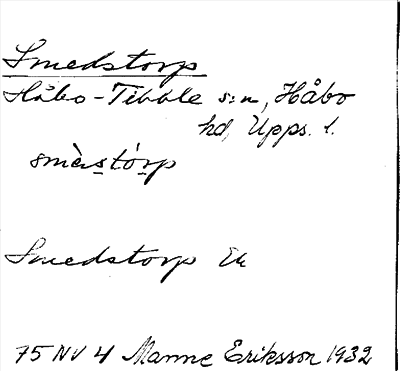 Smedstorp
Håbo-Tibble s:n, Håbo
hd, Upps. l.
smὲ̀ṣtórp
Smedstorp Ek
75 NV 4 Manne Eriksson 1932